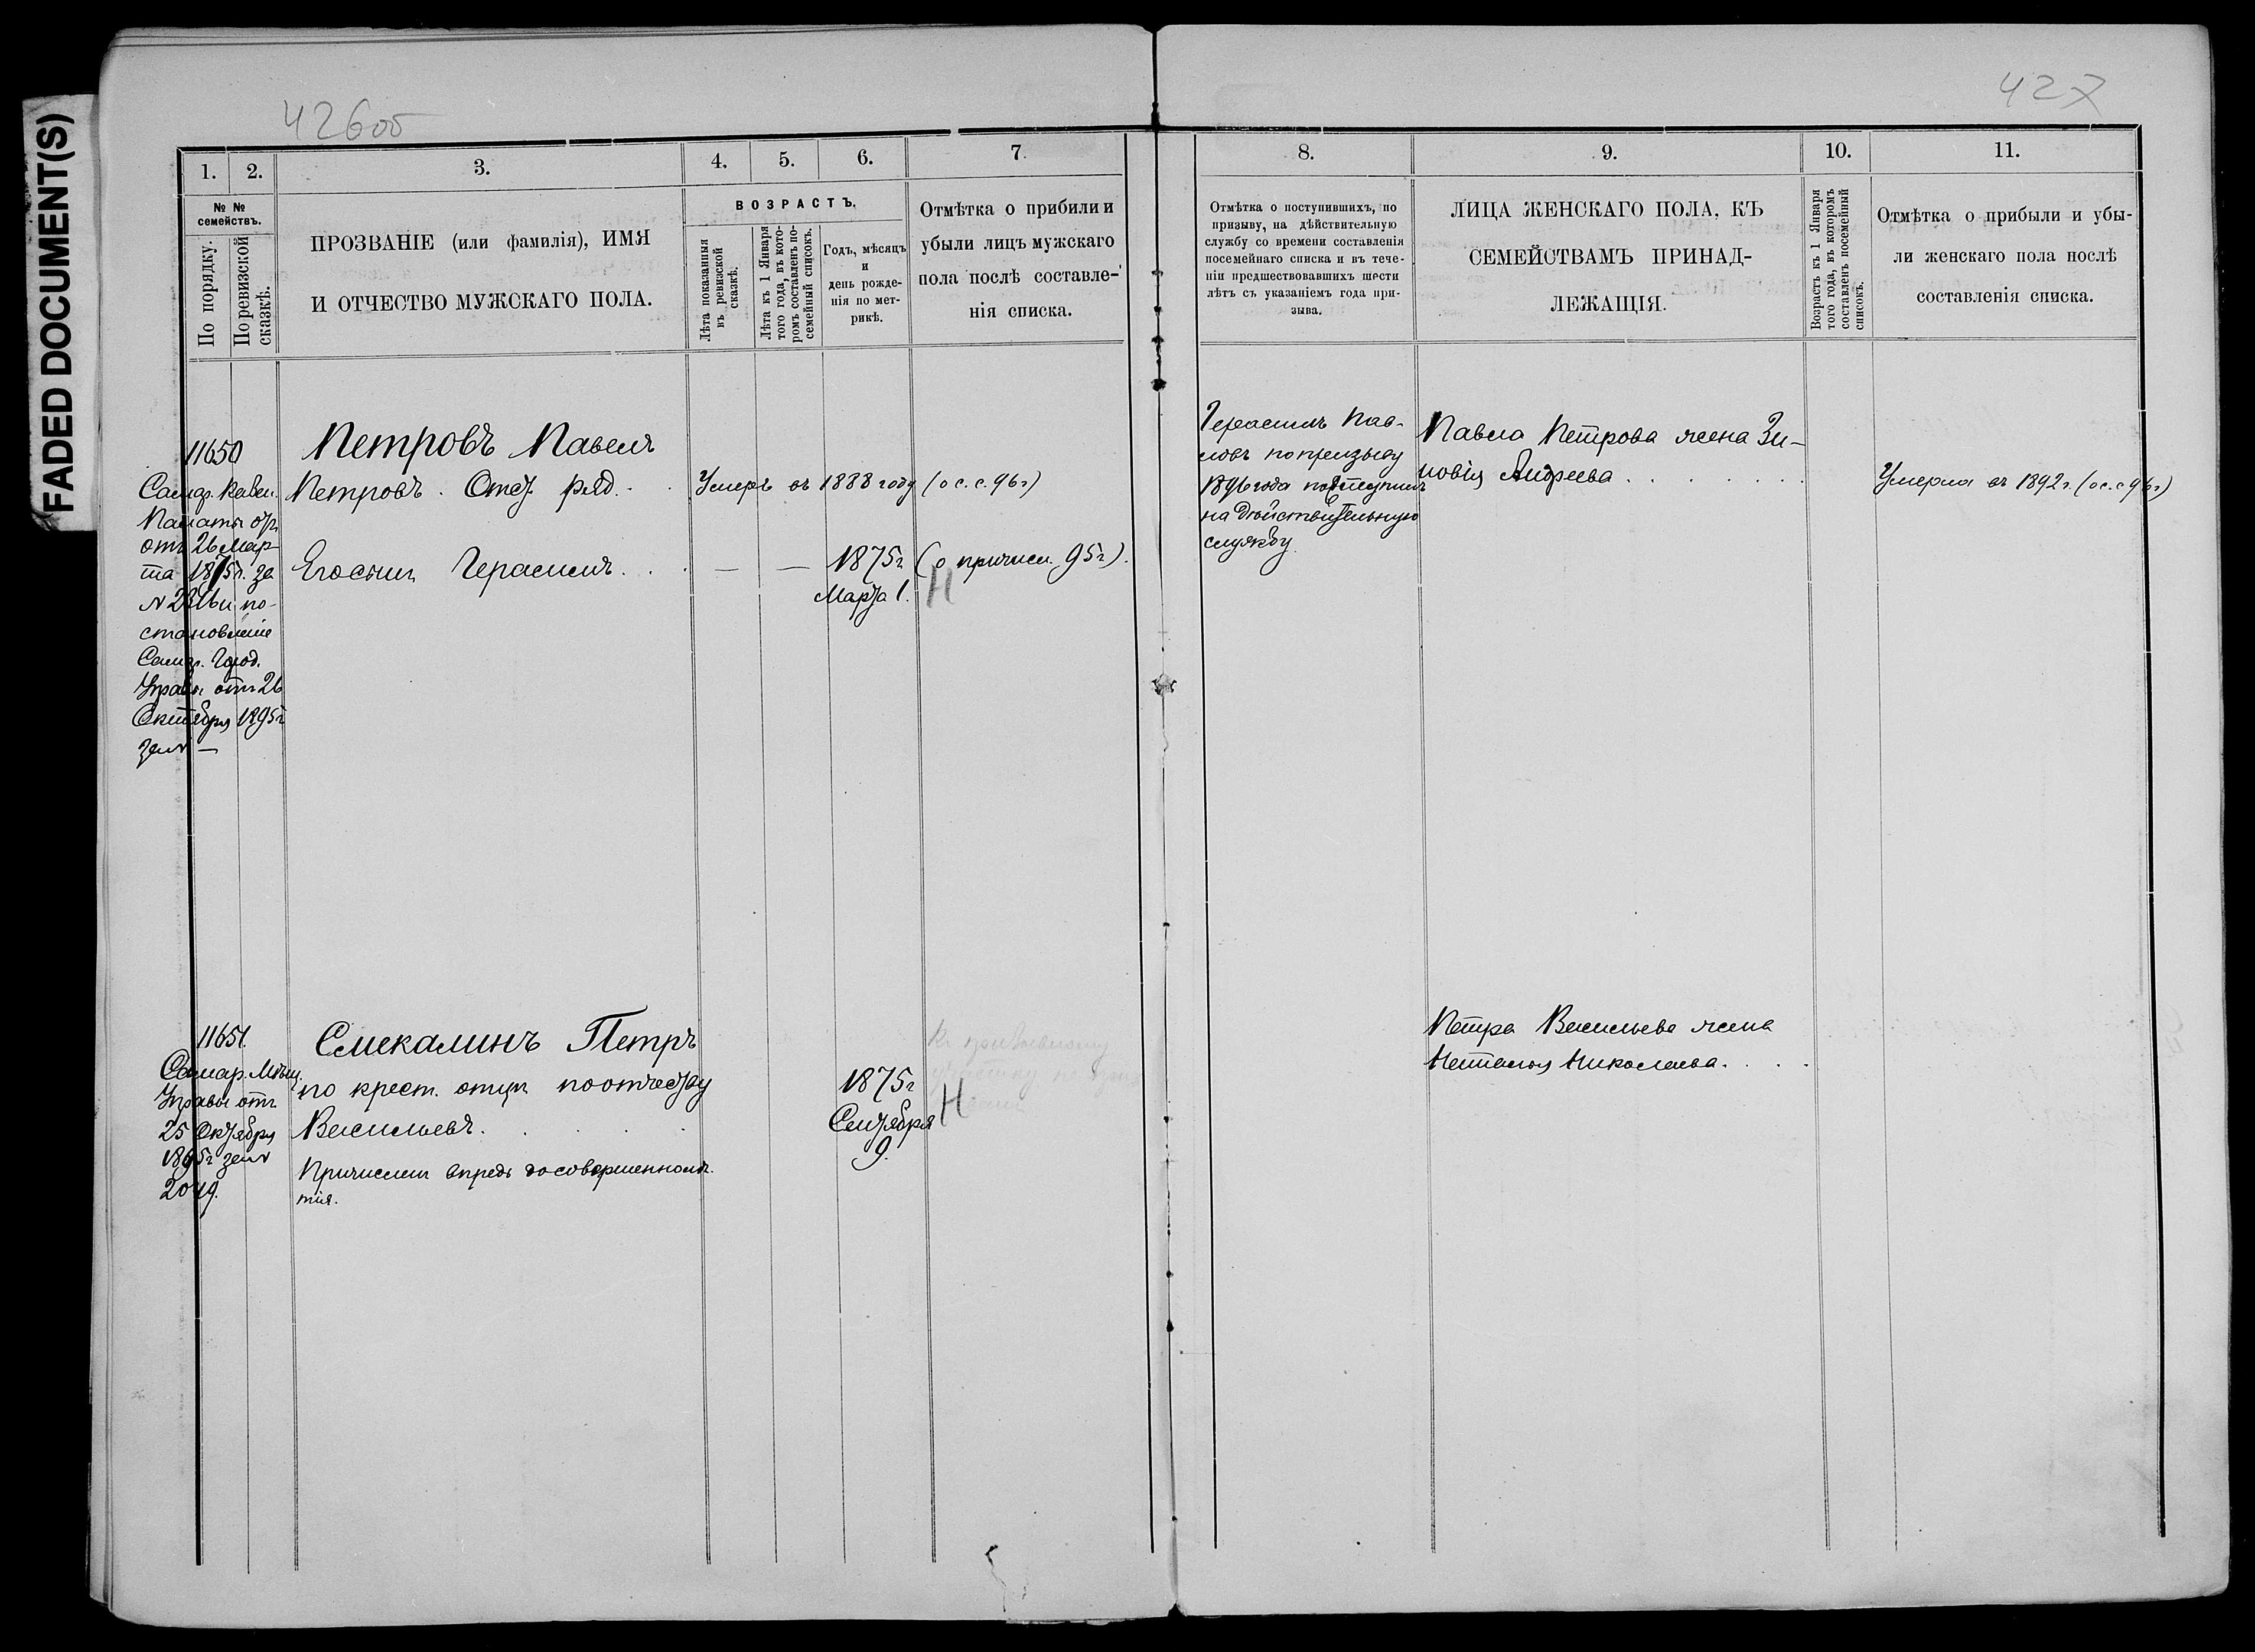 FADED DOCUMENT(S)
426об
1.
2.
3.
4.
5.
6.
7.
№ №
семействъ.
По порядку.
По ревизской
сказкѣ.
ПРОЗВАНІЕ (или фамилія), ИМЯ
И ОТЧЕСТВО МУЖСКАГО ПОЛА.
ВОЗРАСТЪ.
Лѣта показанія
въ ревизской
сказкѣ.
Лѣта къ 1 Января
того года, въ кото-
ромъ составленъ по-
семейный списокъ.
Годъ, мѣсяцъ
и
день рожде-
нія по мет-
рикѣ.
Отмѣтка о прибили и
убыли лицъ мужскаго
пола послѣ составле-
нія списка.
11650
Самар. Казен.
Палаты
отъ 26 Мар-
та 1875г. за
№ и по-
становленіе
Самар. Город.
Управы отъ 26
Октября 1895г
за № —
Петровъ Павелъ
Петровъ. Отст. ряд.
Умеръ въ 1888 году (о с. с. 96 г)
Его сынъ Герасимъ
— — 1875г (о причисл. 95г).
Марта 1. Н
11651.
Самар. Мѣщ.
Управы отъ
25 Октября
1895г за №
2049.
Смекалинъ Петръ
по крест. отцу по отчеству
Васильевъ
Причисленъ впредь до совершеннолѣ-
тія.
1875г
Сентября
9.
Къ призывному
участку
Н
427
8.
9.
10.
11.
Отмѣтка о поступившихъ, по
призыву, на дѣйствительную
службу со времени составленія
посемейнаго списка и въ тече-
ніи предшествовавшихъ шести
лѣтъ съ указаніемъ года при-
зыва.
ЛИЦА ЖЕНСКАГО ПОЛА, КЪ
СЕМЕЙСТВАМЪ ПРИНАД-
ЛЕЖАЩІЯ.
Возрастъ къ 1 Января
того года, въ которомъ
составленъ посемейный
списокъ.
Отмѣтка о прибыли и убы-
ли женскаго пола послѣ
составленія списка.
Герасимъ Пав-
ловъ по призыву
1896 года поступилъ
на дѣйствительную
службу.
Павла Петрова жена Зи-
новія Андреева
Умерла въ 1892 г. (о с. с 96 г)
Петра Васильева жена
Наталья Николаева.